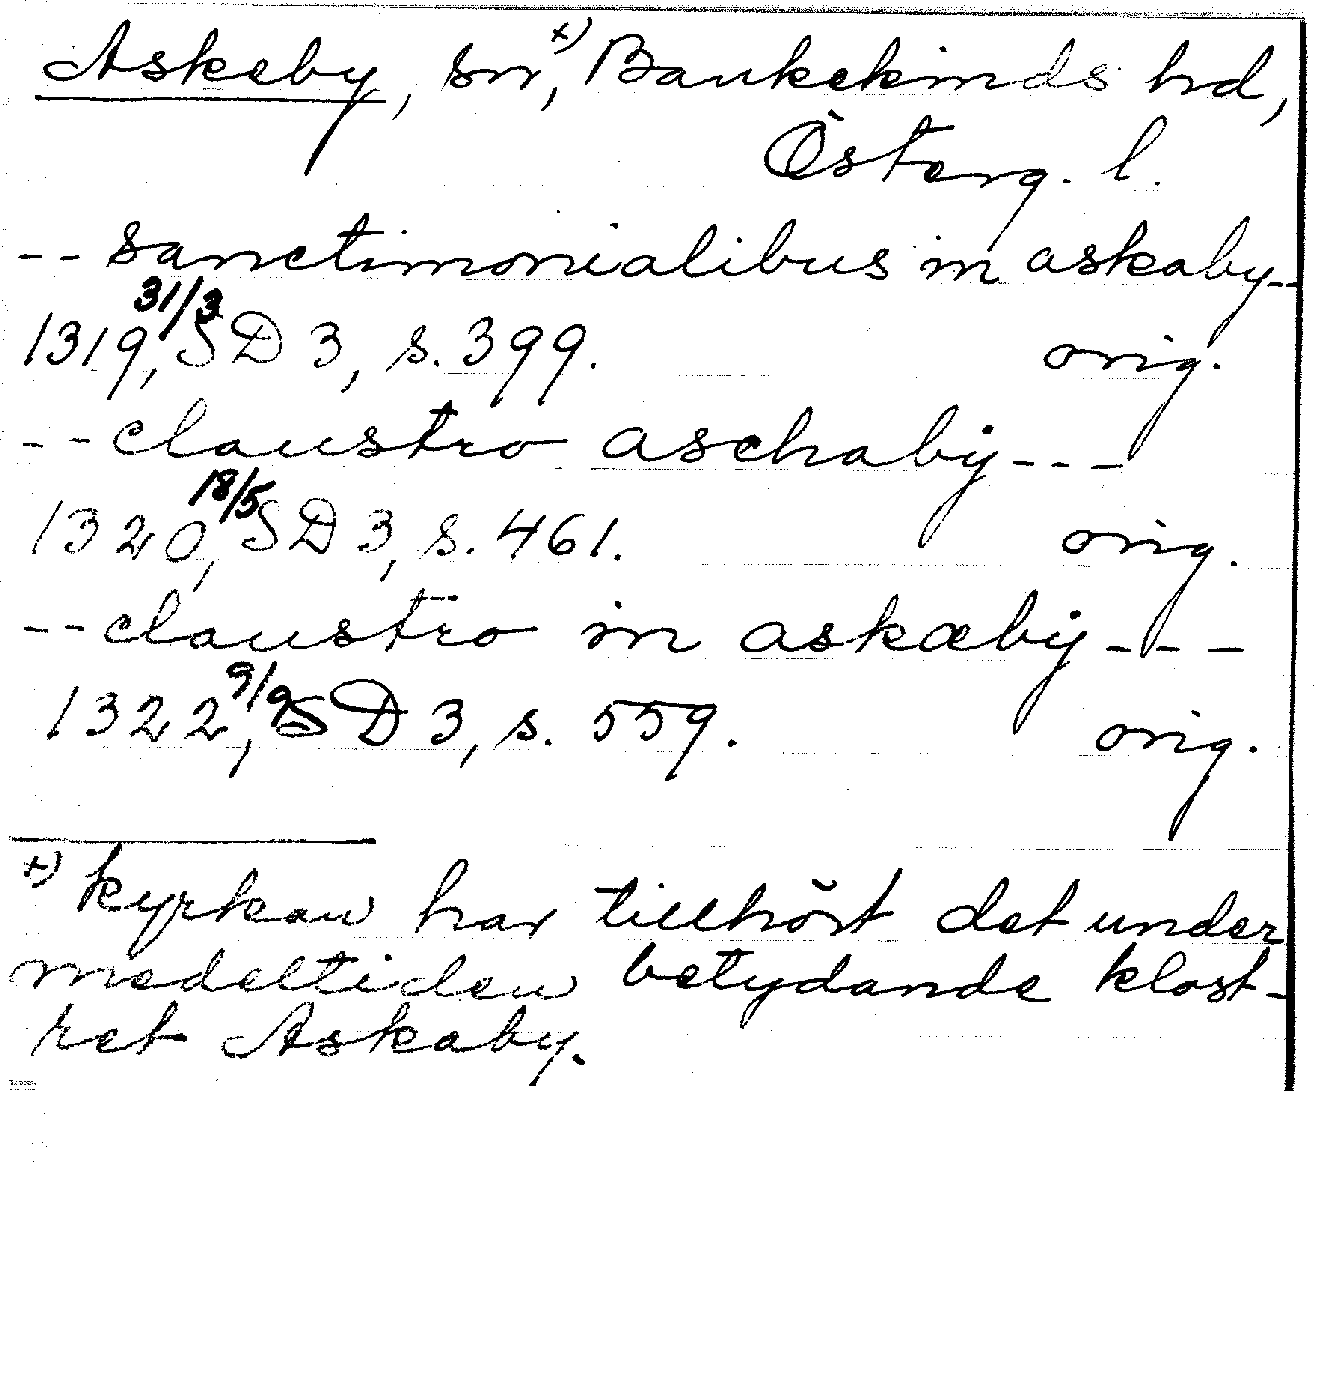 Askeby, sn,+) Bankekinds hd,
Österg. l.
-- sanctimonialibus in askaby--
1319 31/3, SD 3, s. 399. orig.
-- claustro aschaby ---
1320 18/5, SD 3, s. 461. orig.
-- claustro in askæby ---
1322 9/9, SD 3, s. 559. orig.
+) kyrkan har tillhört det under
medeltiden betydande klost-
ret Askaby.